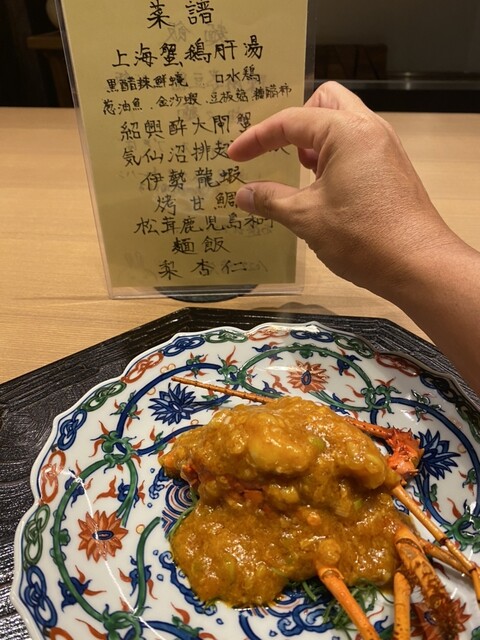 菜譜
上海蟹鵝肝湯
黒醋辣鮮蠔 口水鶏
葱油魚 金沙蝦
紹興醉大閘蟹
気仙沼排翅
伊勢龍蝦
烤甘鯛
松茸鹿児島和
麺飯
梨杏仁